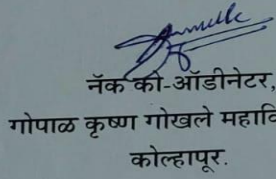 नॅक को-ऑडीनेटर,
गोपाळ कृष्ण गोखले
कोल्हापूर.